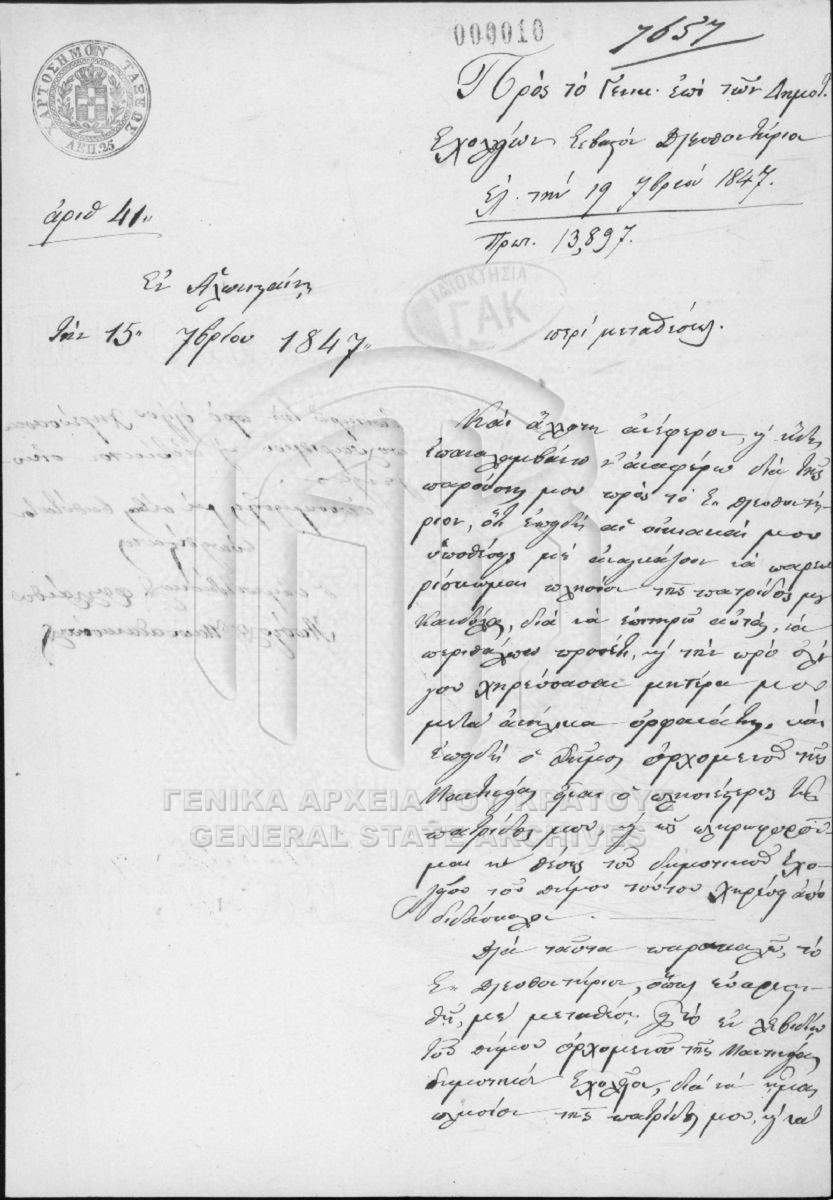 000010
7657
ΧΑΡΤΟΣΗΜΟΝ ΤΑΞΕΩΣ
ΛΕΠ. 25
Πρὸς τὸ Γενικ. ἐπὶ τῶν Δημοτ.
Σχολείων Σεβαστὸν Διευθυντήριον
Ἐλ. τὴν 19 7βρίου 1847.
Πρωτ. 13,897.
ἀριθ 41
Ἐν
τὴν 15 7βρίου 1847
ΙΔΙΟΚΤΗΣΙΑ
ΓΑΚ
περὶ μεταθέσεως.
Καὶ ἄλλοτε ἀνέφερον, καὶ ἤδη
ἐπαναλαμβάνω ν' ἀναφέρω διὰ τῆς
παρούσης μου πρὸς τὸ Σ. Διευθυντή-
ριον, ὅτι ἐπειδὴ αἱ οἰκιακαί μου
ὑποθέσεις μὲ ἀναγκάζουν νὰ παρευ-
ρίσκωμαι πλησίον τῆς πατρίδος μου
διὰ νὰ ἐπιτηρῶ αὐτάς, νὰ
περιθάλπω προσέτι καὶ τὴν πρὸ ὀλί-
γου χηρεύσασαν μητέρα μου
μετὰ ἀνήλικα ὀρφανά της. καὶ
ἐπειδὴ ὁ Δῆμος Ὀρχομενοῦ τῆς
Μαντινείας εἶναι ὁ πλησιέστερος τῆς
πατρίδος μου, καὶ ὡς πληροφοροῦ-
μαι ἡ θέσις τοῦ δημοτικοῦ σχο-
λείου τοῦ δήμου τούτου χηρεύει ἀπὸ
διδάσκαλον.
Διὰ ταῦτα παρακαλῶ τὸ
Σ. Διευθυντήριον, ὅπως εὐαρεστη-
θῇ, μὲ μεταθέσῃ εἰς τὸ ἐν Λεβιδίῳ
τοῦ δήμου Ὀρχομενοῦ τῆς Μαντινείας
δημοτικὸν σχολεῖον, διὰ νὰ ἦμαι
πλησίον τῆς πατρίδος μου, καὶ νὰ
ΓΕΝΙΚΑ ΑΡΧΕΙΑ ΤΟΥ ΚΡΑΤΟΥΣ
GENERAL STATE ARCHIVES